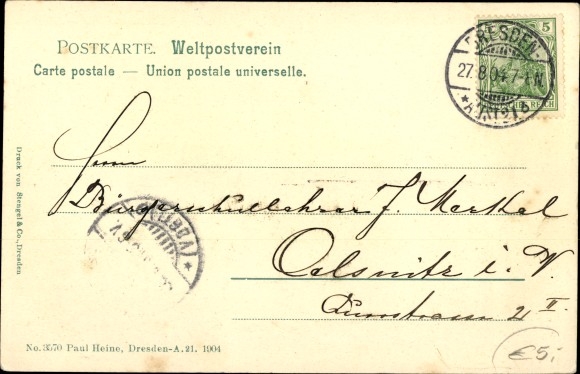 POSTKARTE. Weltpostverein
Carte postale — Union postale universelle.
5
DRESDEN
27.8.04.7-8N.
REICH
Druck von Stengel & Co., Dresden
Herrn
Bürgerschullehrer J. Merkel
Oelsnitz i. V.
(VOGTL)
II
No. 3570 Paul Heine, Dresden-A. 21. 1904
€5,-